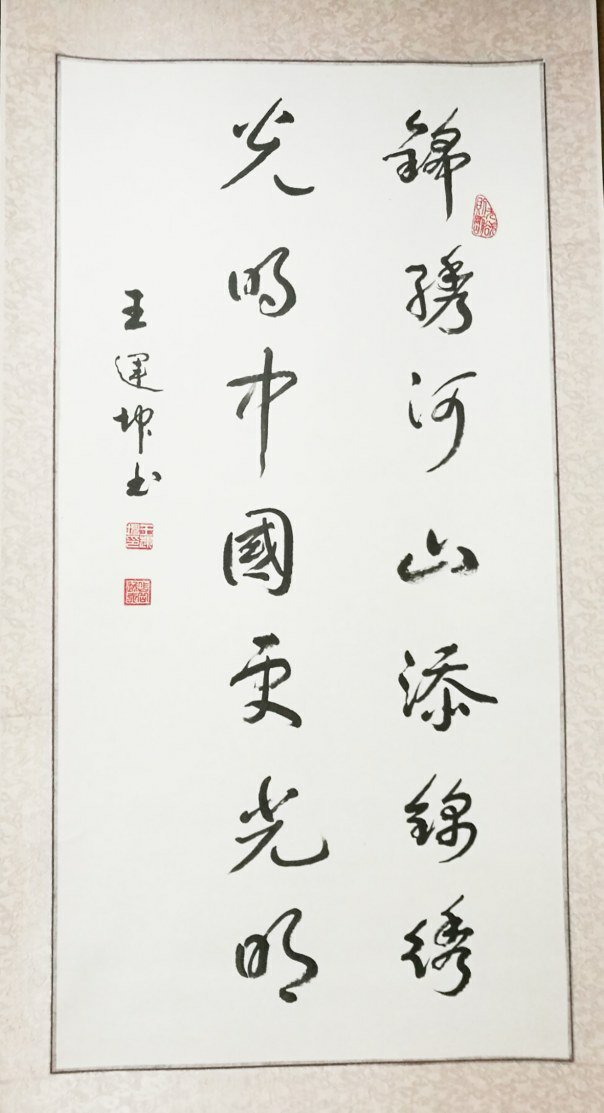 錦繡河山添錦绣
光明中國更光明
王運坤书